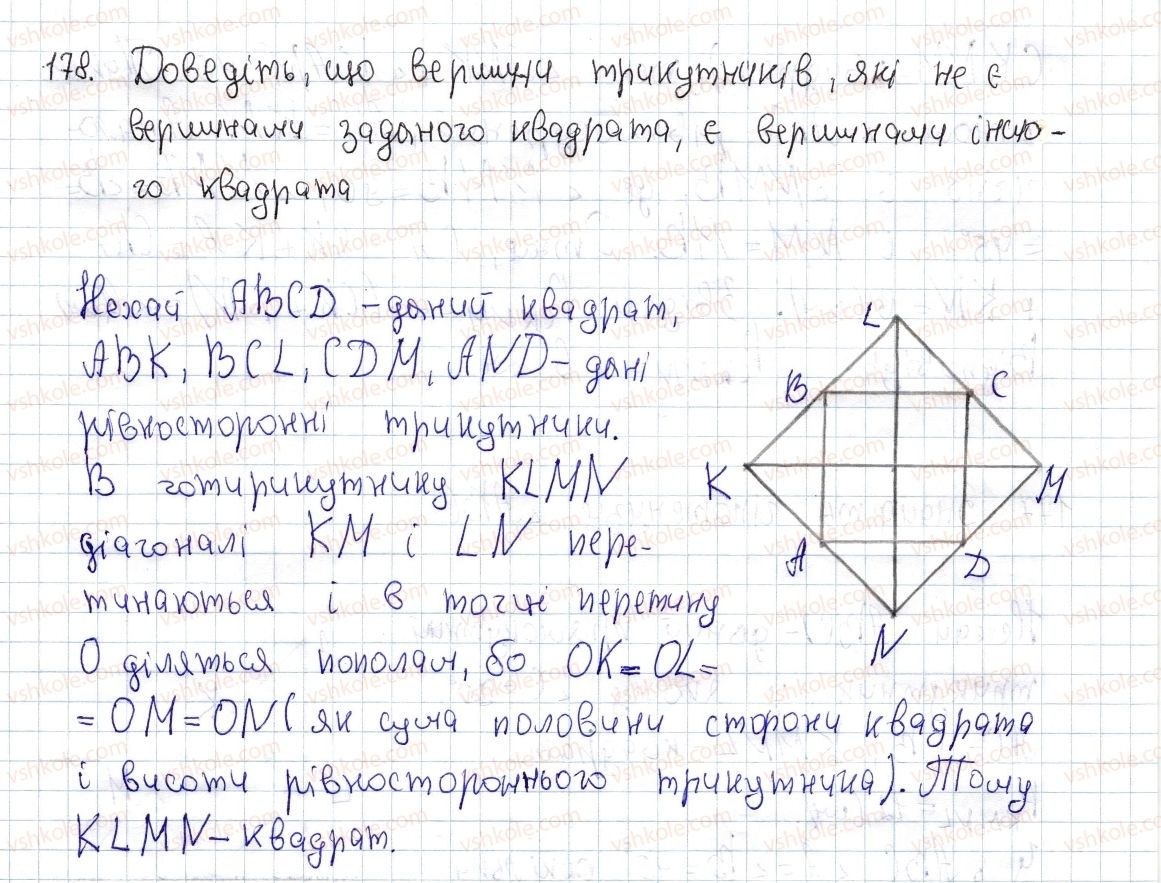 178. Доведіть, що вершини трикутників, які не є
вершинами заданого квадрата, є вершинами іншо-
го квадрата
Нехай ABCD – даний квадрат,
ABK, BCL, CDM, AND – дані
рівносторонні трикутники.
В чотирикутнику KLMN
діагоналі KM і LN пере-
тинаються і в точці перетину
O діляться пополам, бо OK = OL =
= OM = ON (як сума половини сторони квадрата
і висоти рівностороннього трикутника). Тому
KLMN – квадрат.
L
B
C
K
M
A
D
N
vshkole.com